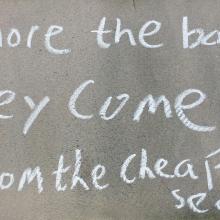 nore the ba
ey Come
om the cheap
se